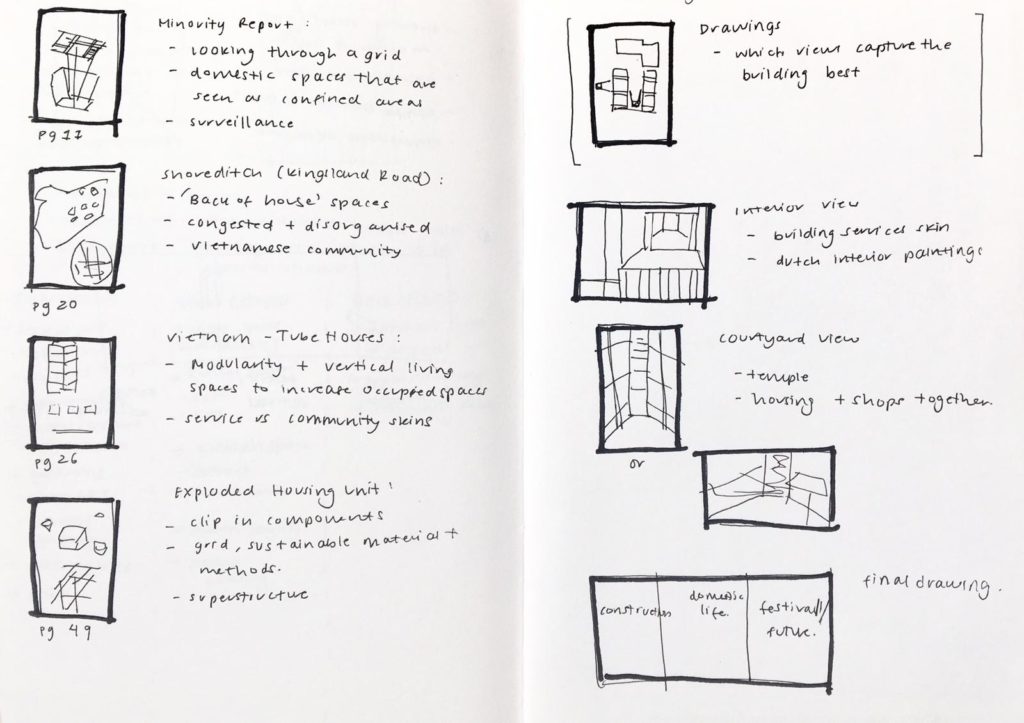 Minority Report :
- looking through a grid
- domestic spaces that are
seen as confined areas
- surveillance
pg 11
Shoreditch (Kingsland Road) :
- 'Back of house' spaces
- congested + disorganised
- vietnamese community
pg 20
Vietnam - Tube Houses :
- Modularity + vertical living
spaces to increase occupied spaces
- service vs community skins
pg 26
Exploded Housing Unit :
- clip in components
- grid, sustainable material +
methods.
- superstructure
pg 49
Drawings
- which views capture the
building best
Interior view
- building services skin
- dutch interior paintings
Courtyard view
- temple
- housing + shops together.
or
final drawing.
construction
domestic
life.
festival/
future.